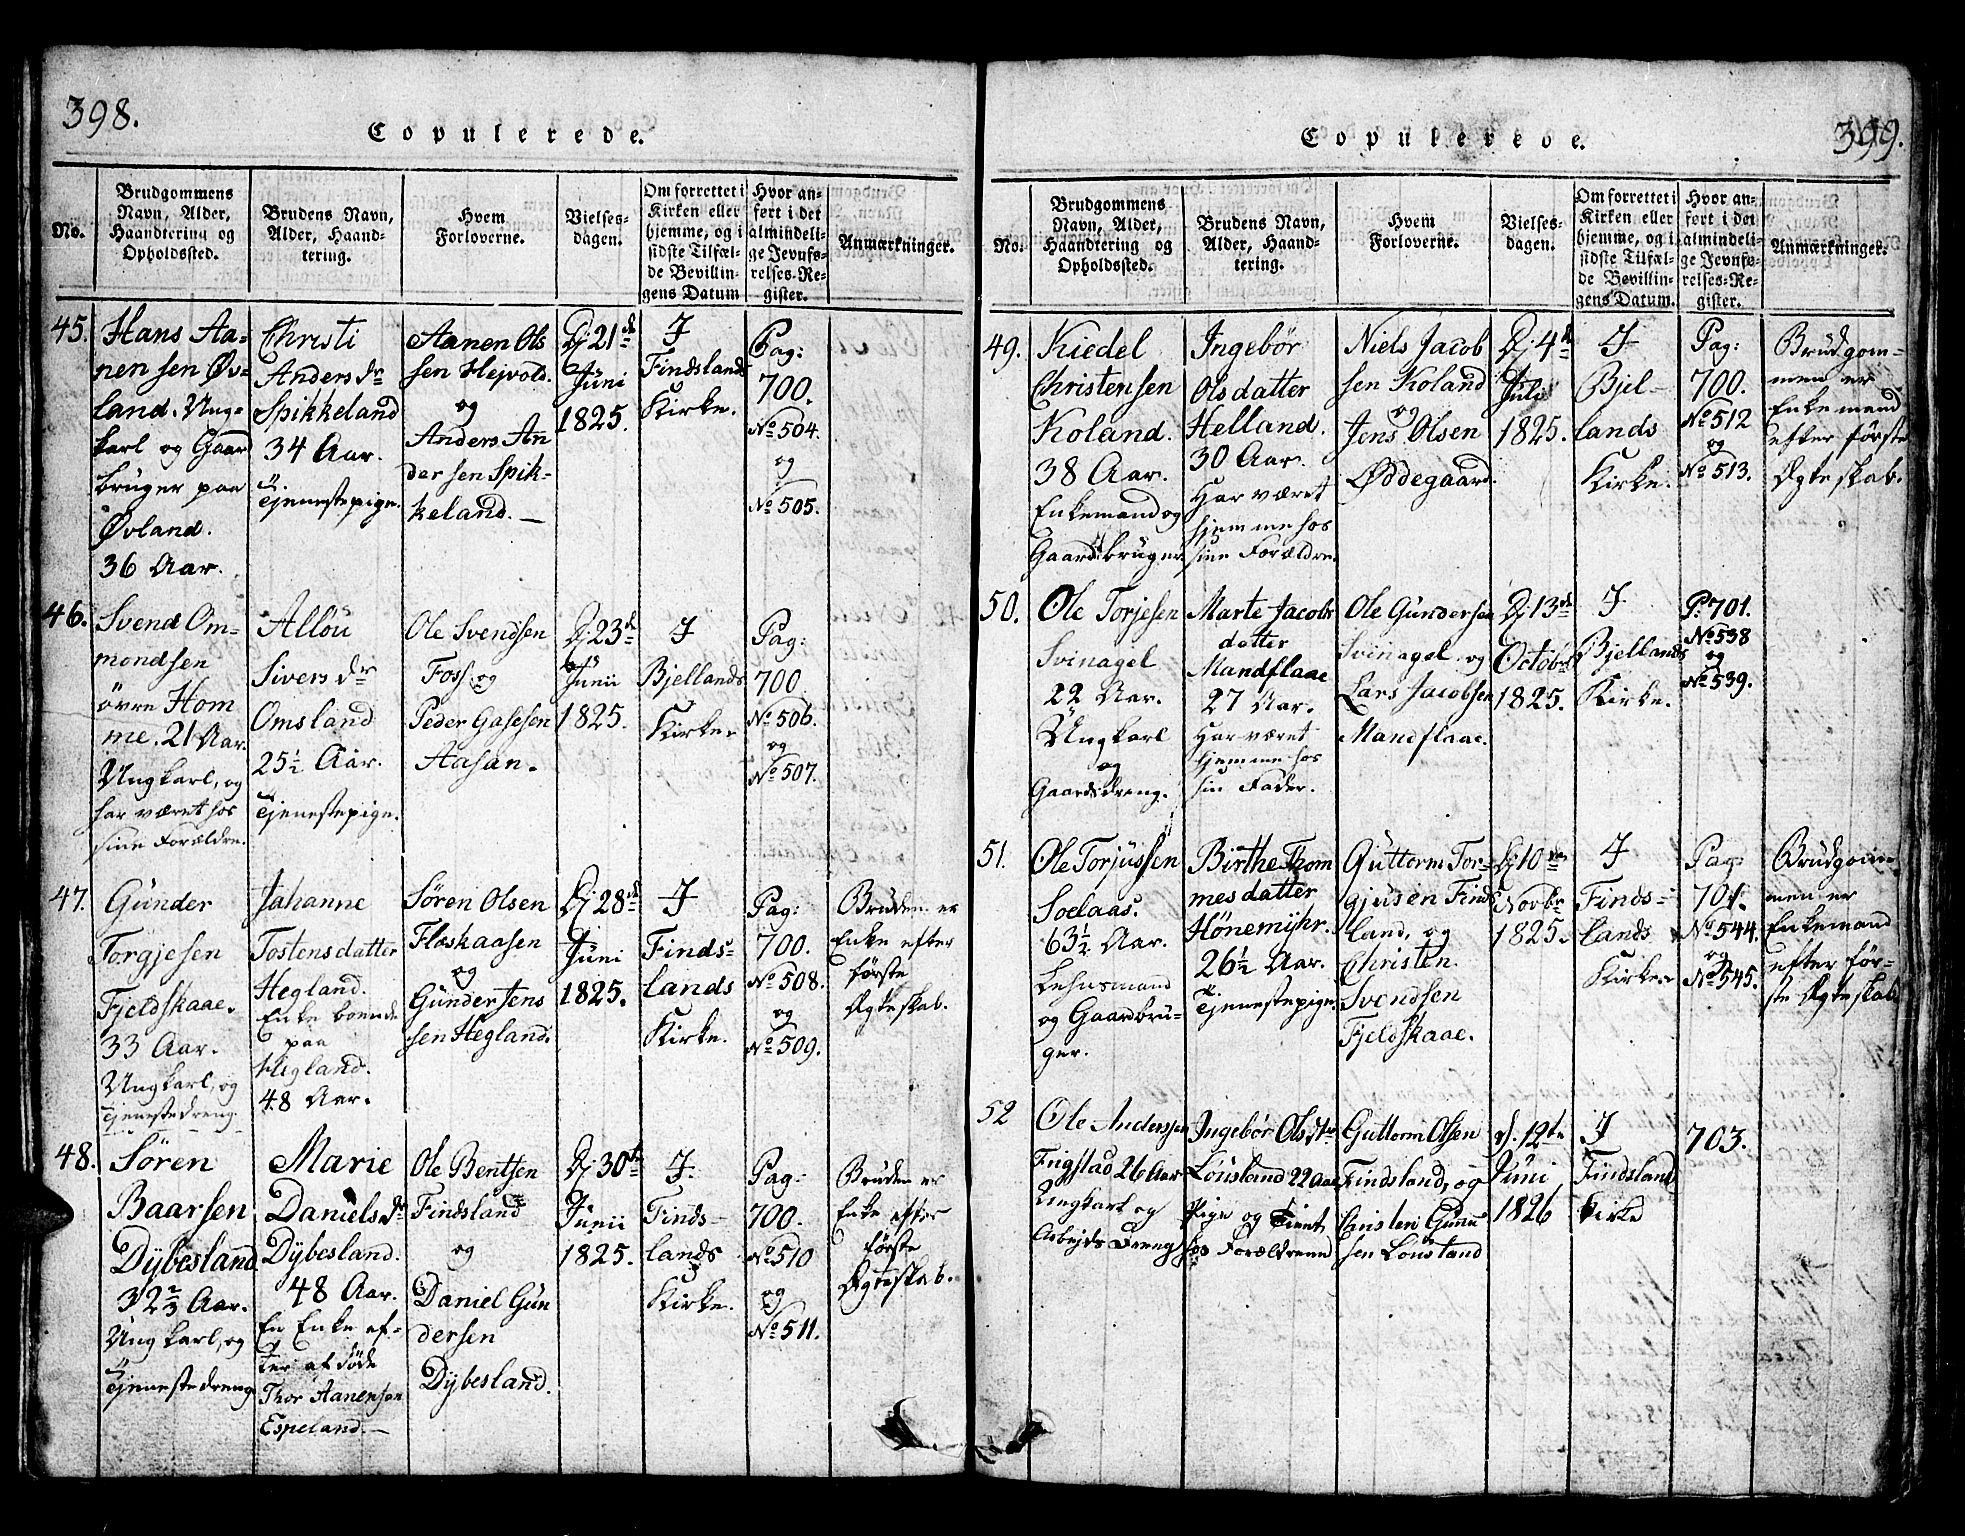 398.
Copulerede.
No.
Brudgommens
Navn, Alder,
Haandtering og
Opholdssted.
Brudens Navn,
Alder, Haand-
tering.
Hvem
Forloverne.
Vielses-
dagen.
Om forrettet i
Kirken eller
hjemme, og i
sidste Tilfæl-
de Bevillin-
gens Datum
Hvor an-
ført i det
almindeli-
ge Jevnfø-
relses-Re-
gister.
Anmærkninger.
45.
Hans Aa-
nensen Øv-
land. Ung-
karl og Gaard
bruger paa
Øvland.
36 Aar.
Christi
Anders dr
Spikkeland
34 Aar.
Tjenestepige.
Aanen Ols
sen Hejvold.
og
Anders An
dersen Spik-
keland. —
Dj 21de
Juni
1825.
I
Findslands
Kirke.
Pag:
700.
No 504.
og
No 505.
46.
Svend Om-
mondsen
øvre Hom
me. 21 Aar.
Ungkarl, og
har været hos
sine Forældre.
Allou
Sivers dr
Omsland
25½ Aar.
Tjenestepige.
Ole Svendsen
Foss og
Peder Gasesen
Aasan.
Dj 23de
Junii
1825.
I
Bjellands
Kirke.
Pag:
700
No 506.
og
No 507.
47.
Gunder
Torgjesen
Fjeldskaae.
33 Aar.
Ungkarl, og
Tjenestedreng.
Johanne
Tostensdatter
Hegland.
Enke boende
paa
Hegland.
48 Aar.
Søren Olsen
Floskaasen
og
Gunder Tens
sen Hegland.
Dj 28de
Juni
1825.
I
Finds-
lands
Kirke.
Pag:
700.
No 508.
og
No 509.
Bruden er
Enke efter
første
Ægteskab.
48.
Søren
Baarsen
Dybesland
32⅔ Aar.
Ungkarl, og
Tjenestedreng
Marie
Daniels dr
Dybesland.
48 Aar.
En Enke ef-
ter afdøde
Thor Aanensen
Espeland. —
Ole Bentsen
Findsland
og
Daniel Gun
dersen
Dybesland.
Dj 30te
Junii
1825.
I
Finds-
lands
Kirke.
Pag:
700.
No 510
og
No 511.
Bruden er
Enke efter
første
Ægteskab.
399.
Copulerede.
No.
Brudgommens
Navn, Alder,
Haandtering og
Opholdssted.
Brudens Navn,
Alder, Haand-
tering.
Hvem
Forloverne.
Vielses-
dagen.
Om forrettet i
Kirken eller
hjemme, og i
sidste Tilfæl-
de Bevillin-
gens Datum.
Hvor an-
ført i det
almindeli-
ge Jevnfø-
relses-Re-
gister.
Anmærkninger.
49.
Kiedel
Christensen
Koland.
38 Aar.
Enkemand og
Gaardsbruger.
Ingebør
Olsdatter
Helland.
30 Aar.
Har været
hjemme hos
sine Forældre.
Niels Jacob
sen Koland
og
Jens Olsen
Øddegaard.
Dj 4de
Juli
1825.
I
Bjel-
lands
Kirke.
Pag:
700.
No 512
og
No 513.
Brudgom-
men er
Enkemand
efter første
Ægteskab.
50.
Ole Torjesen
Svinagel
22 Aar.
Ungkarl
og
Gaardsdreng.
Marte Jacobs
datter
Mandflaae
27 Aar.
Har været
hjemme hos
sin Fader.
Ole Gundersen
Svinagel og
Lars Jacobsen
Mandflaae.
Dj 13de
Octobr
1825.
I
Bjellands
Kirke.
P: 701.
No 538
og
No 539.
51.
Ole Torjussen
Soelaas.
63½ Aar.
Lehnsmand
og Gaardbru-
ger.
Birthe Thom
mesdatter
Hønemyhr.
26½ Aar.
Tjenestepige.
Guttorm Tor-
gjusen Finds
land, og
Christen
Svendsen
Fjeldskaae.
Dj 10de
Novbr
1825.
I
Finds-
lands
Kirke.
Pag:
701.
No 544.
og
No 545.
Brudgom-
men er
Enkemand
efter før-
ste Ægteskab
52
Ole Anderssen
26 Aar
Ungkarl og
Arbejds Dreng
Ingebør Olsdtr
Lousland 22 Aar
Pige og tient
hos Forældrene
Guttorm Olsen
Findsland, og
Christen Gunu
sen Lousland
d. 12te
Juni
1826
I
Findsland
Kirke
703.